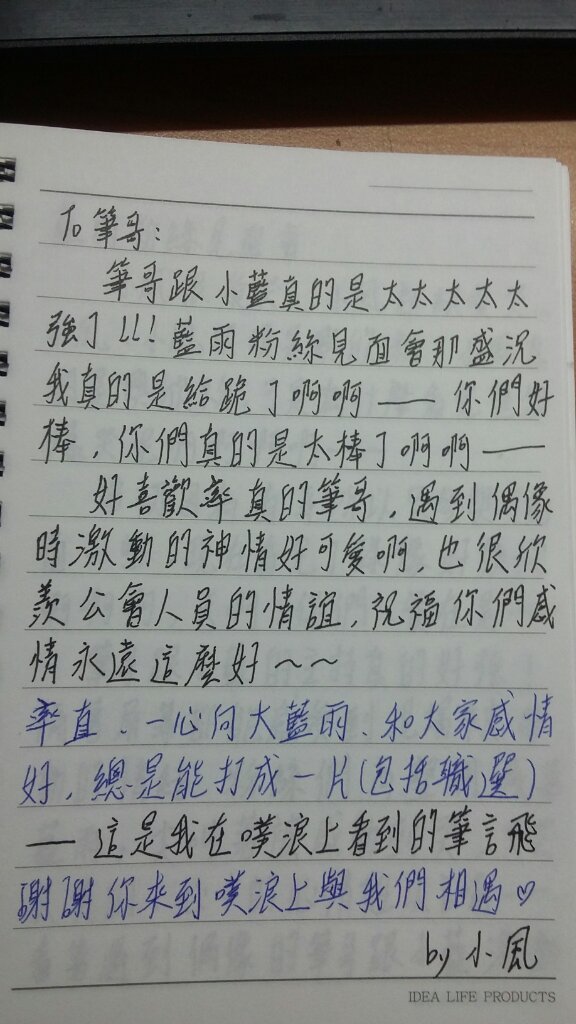 To 筆哥：
筆哥跟小藍真的是太太太太太
強了!!! 藍雨粉絲見面會那盛況
我真的是給跪了啊啊——你們好
棒，你們真的是太棒了啊啊——
好喜歡率真的筆哥，遇到偶像
時激動的神情好可愛啊，也很欣
羨公會人員的情誼，祝福你們感
情永遠這麼好～～
率直、一心向大藍雨、和大家感情
好，總是能打成一片(包括職選)
——這是我在噗浪上看到的筆言飛
謝謝你來到噗浪上與我們相遇♡
by 小風
IDEA LIFE PRODUCTS